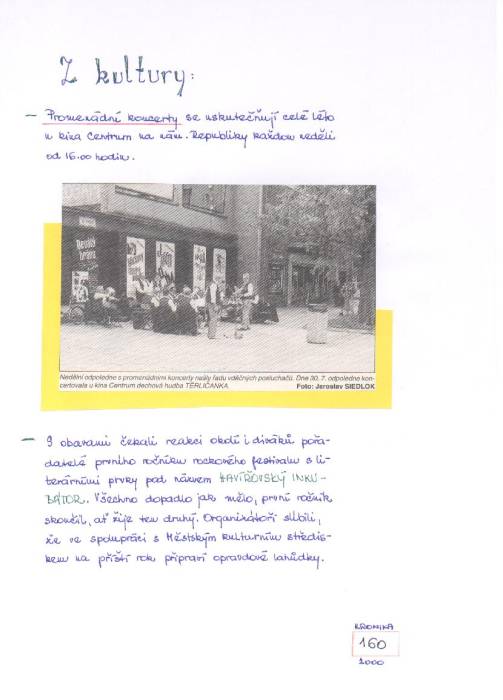 Z kultury:
– Promenádní koncerty se uskutečňují celé léto
u kina Centrum na nám. Republiky každou neděli
od 16.00 hodin.
Nedělní odpoledne s promenádními koncerty našly řadu vděčných posluchačů. Dne 30. 7. odpoledne kon-
certovala u kina Centrum dechová hudba TĚRLIČANKA. Foto: Jaroslav SIEDLOK
– S obavami čekali reakci okolí i diváků pořa-
datelé prvního ročníku rockového festivalu s li-
terárními prvky pod názvem HAVÍŘOVSKÝ INKU-
BÁTOR. Všechno dopadlo jak mělo, první ročník
skončil, ať žije ten druhý. Organizátoři slíbili,
že ve spolupráci s Městským kulturním středis-
kem na příští rok připraví opravdové lahůdky.
KRONIKA
160
2000